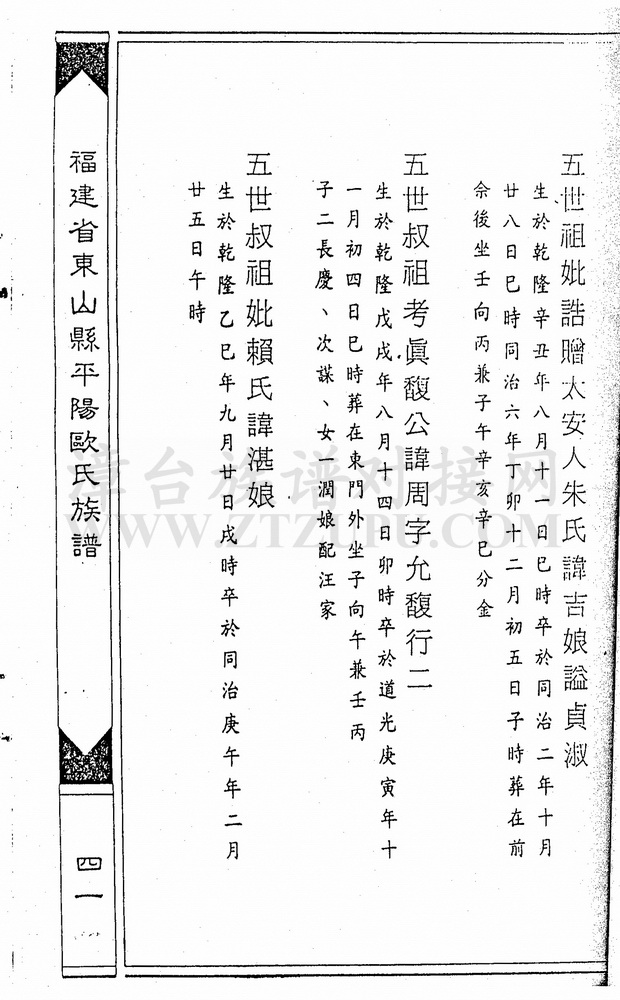 五世祖妣誥贈太安人朱氏諱吉娘謚貞淑
生於乾隆辛丑年八月十一日巳時卒於同治二年十月
廿八日巳時同治六年丁卯十二月初五日子時葬在前
佘後坐壬向丙兼子午辛亥辛巳分金
五世叔祖考眞馥公諱周字允馥行二
生於乾隆戊戌年八月十四日卯時卒於道光庚寅年十
一月初四日巳時葬在東門外坐子向午兼壬丙
子二長慶、次謀、女一潤娘配汪家
五世叔祖妣賴氏諱湛娘
生於乾隆乙巳年九月廿日戌時卒於同治庚午年二月
廿五日午時
福建省東山縣平陽歐氏族譜
四一
漳台族谱对接网
WWW.ZTZUPU.COM